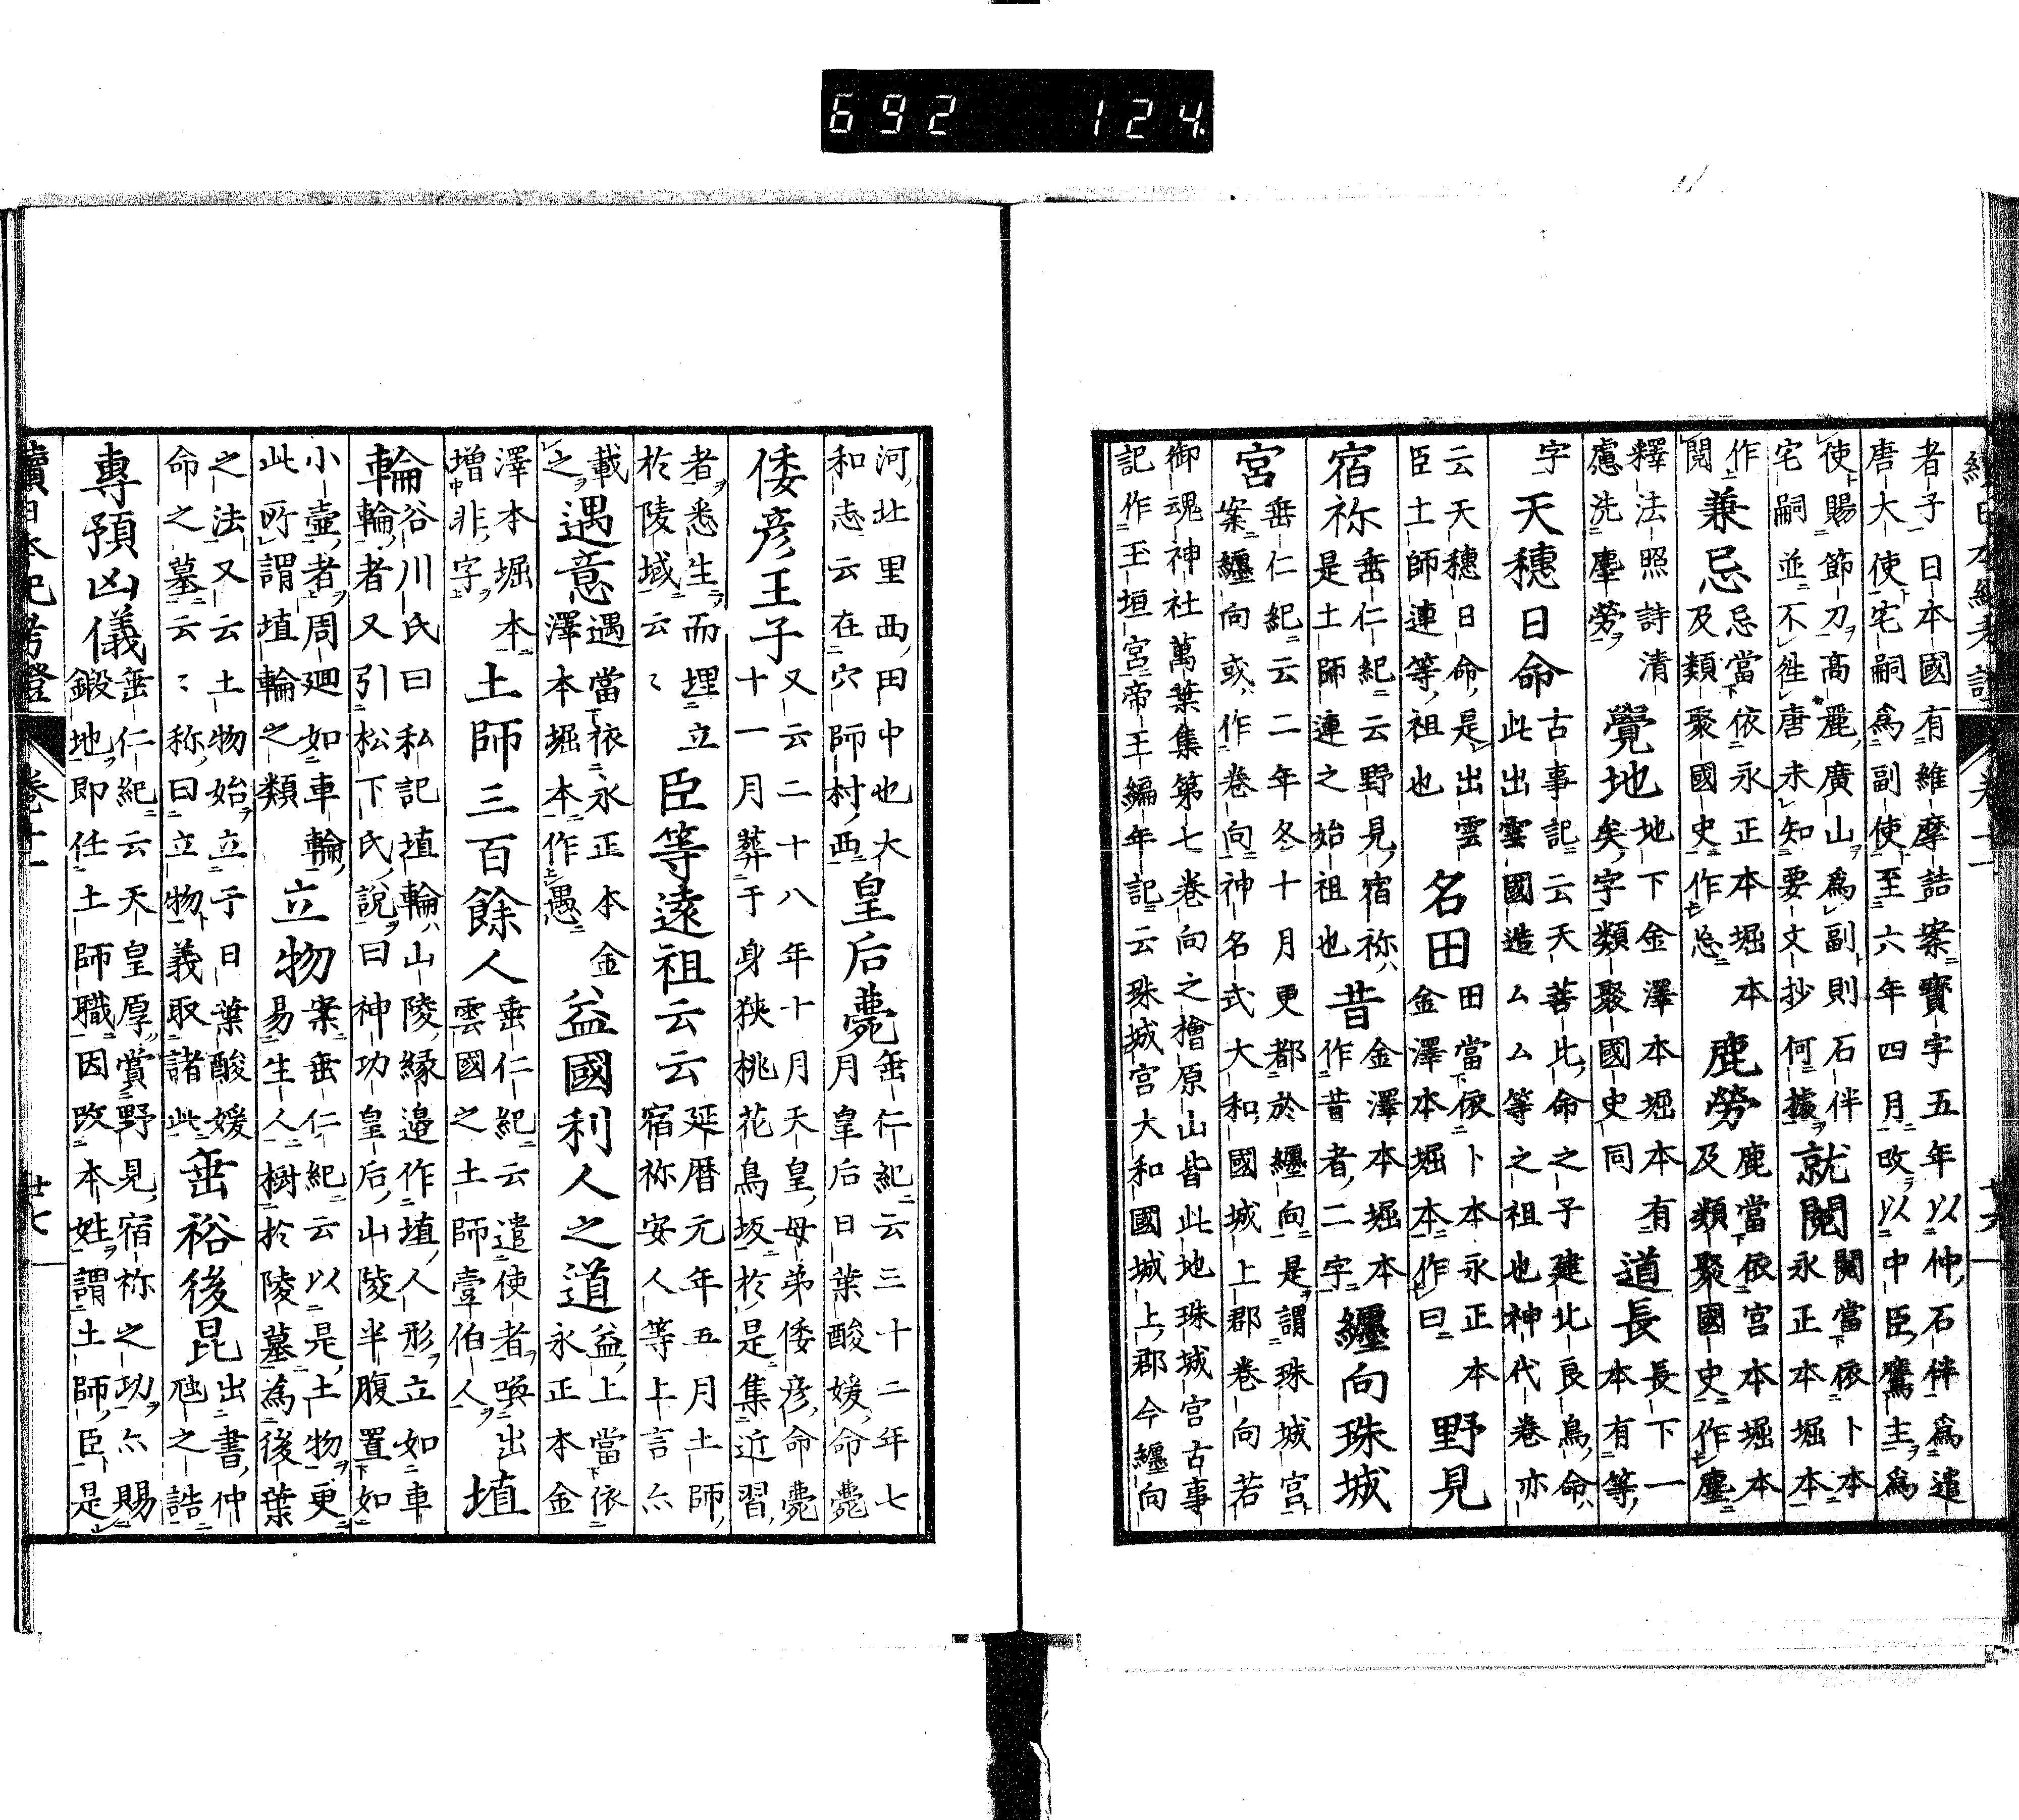 692 124
續日本紀考證 卷十一 廿六
者子日本國有維摩詰案寶字五年以仲石伴爲遣
唐大使宅嗣爲副使至六年四月改以中臣鷹主爲
使賜節刀高麗廣山爲副則石伴
宅嗣並不徃唐未知要文抄何據就閲閲當依卜本
永正本堀本
作閲兼忌忌當依永正本堀本
及類聚國史作忘鹿勞鹿當依宮本堀本
及類聚國史作塵
釋法照詩清
慮洗塵勞覺地地下金澤本堀本有
矣字類聚國史同道長長下一
本有等
字天穗日命古事記云天菩比命之子建比良鳥命
此出雲國造ムムム等之祖也神代卷亦
云天穗日命是出雲
臣土師連等祖也名田田當依卜本永正本
金澤本堀本作曰野見
宿祢垂仁紀云野見宿祢
是土師連之始祖也昔金澤本堀本
作昔者二字纒向珠城
宮垂仁紀云二年冬十月更都於纒向是謂珠城宮
案纒向或作卷向神名式大和國城上郡卷向若
御魂神社萬葉集第七卷向之檜原山皆此地珠城宮古事
記作玉垣宮帝王編年記云珠城宮大和國城上郡今纒向
河北里西田中也大
和志云在穴師村西皇后薨垂仁紀云三十二年七
月皇后日葉酸媛命薨
倭彦王子又云二十八年十月天皇母弟倭彦命薨
十一月葬于身狹桃花鳥坂於是集近習
者悉生而埋立
於陵域云〻臣等遠祖云云延暦元年五月土師
宿祢安人等上言亦
載之遇意遇當依永正本金
澤本堀本作愚益國利人之道益上當依
永正本金
澤本堀本
增非字土師三百餘人垂仁紀云遣使者喚出
雲國之土師壹伯人埴
輪谷川氏曰私記埴輪山陵緣邉作埴人形立如車
輪者又引松下氏說曰神功皇后山陵半腹置如
小壷者周廻如車輪
此所謂埴輪之類立物案垂仁紀云以是土物更
易生人樹於陵墓為後葉
之法又云土物始立于日葉酸媛
命之墓云〻称曰立物義取諸此垂裕後昆出書仲
虺之誥
專預凶儀垂仁紀云天皇厚賞野見宿祢之功亦賜
鍛地即任土師職因改本姓謂土師臣是
續日本紀考證 卷十一 廿七